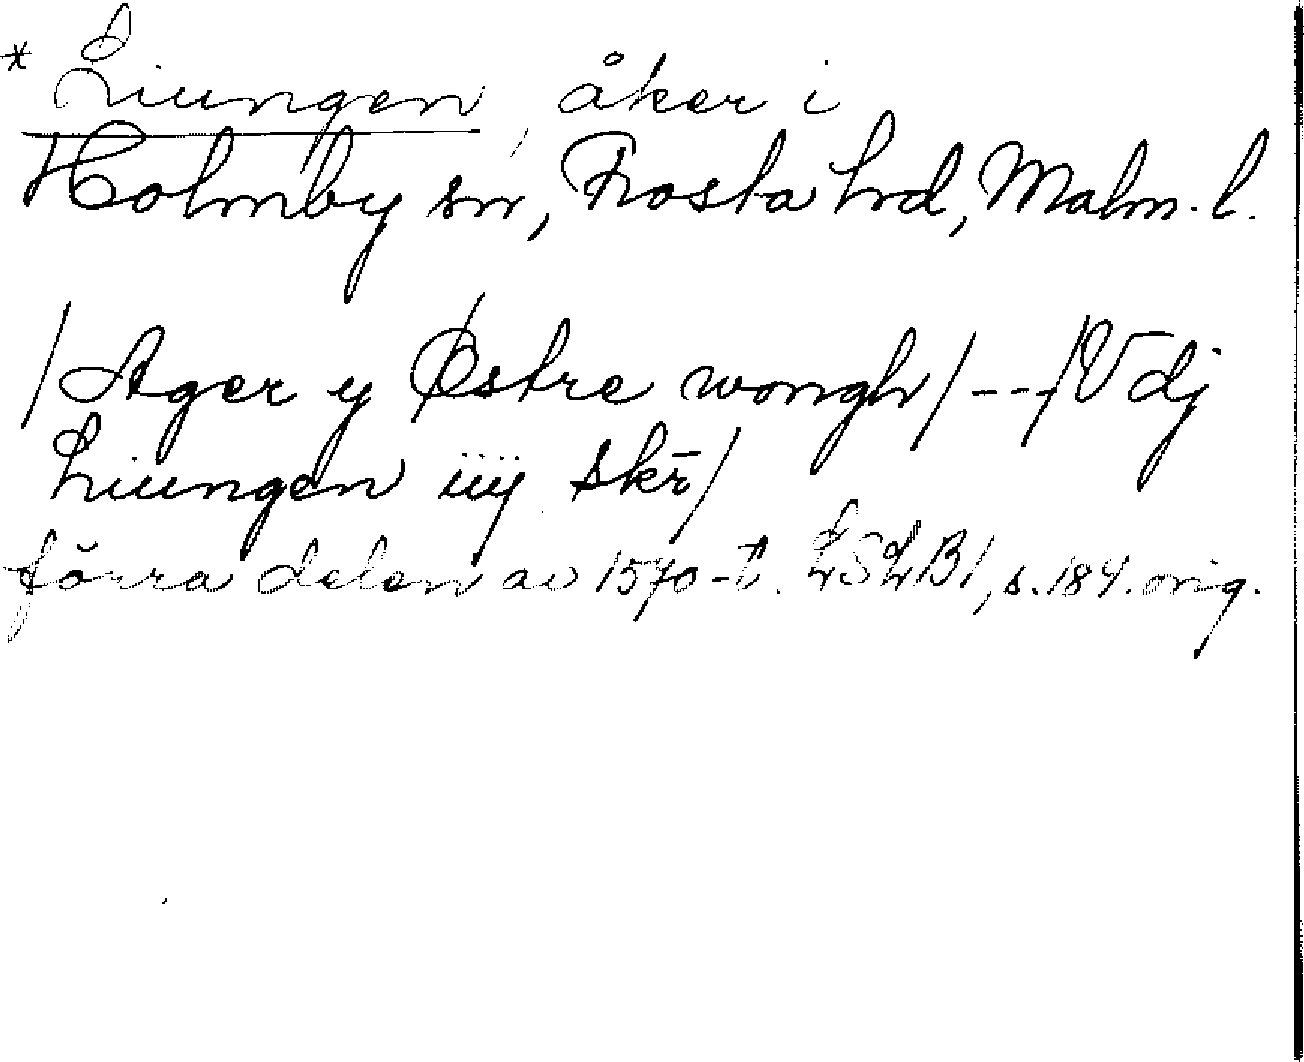 * Liungen, åker i
Holmby sn, Frosta hrd, Malm. l.
/Ager y Østre wongh/ - - /V̄ dj
Liungen iiij skr̄/
förra delen av 1570-t. LSLB1, s. 184. orig.